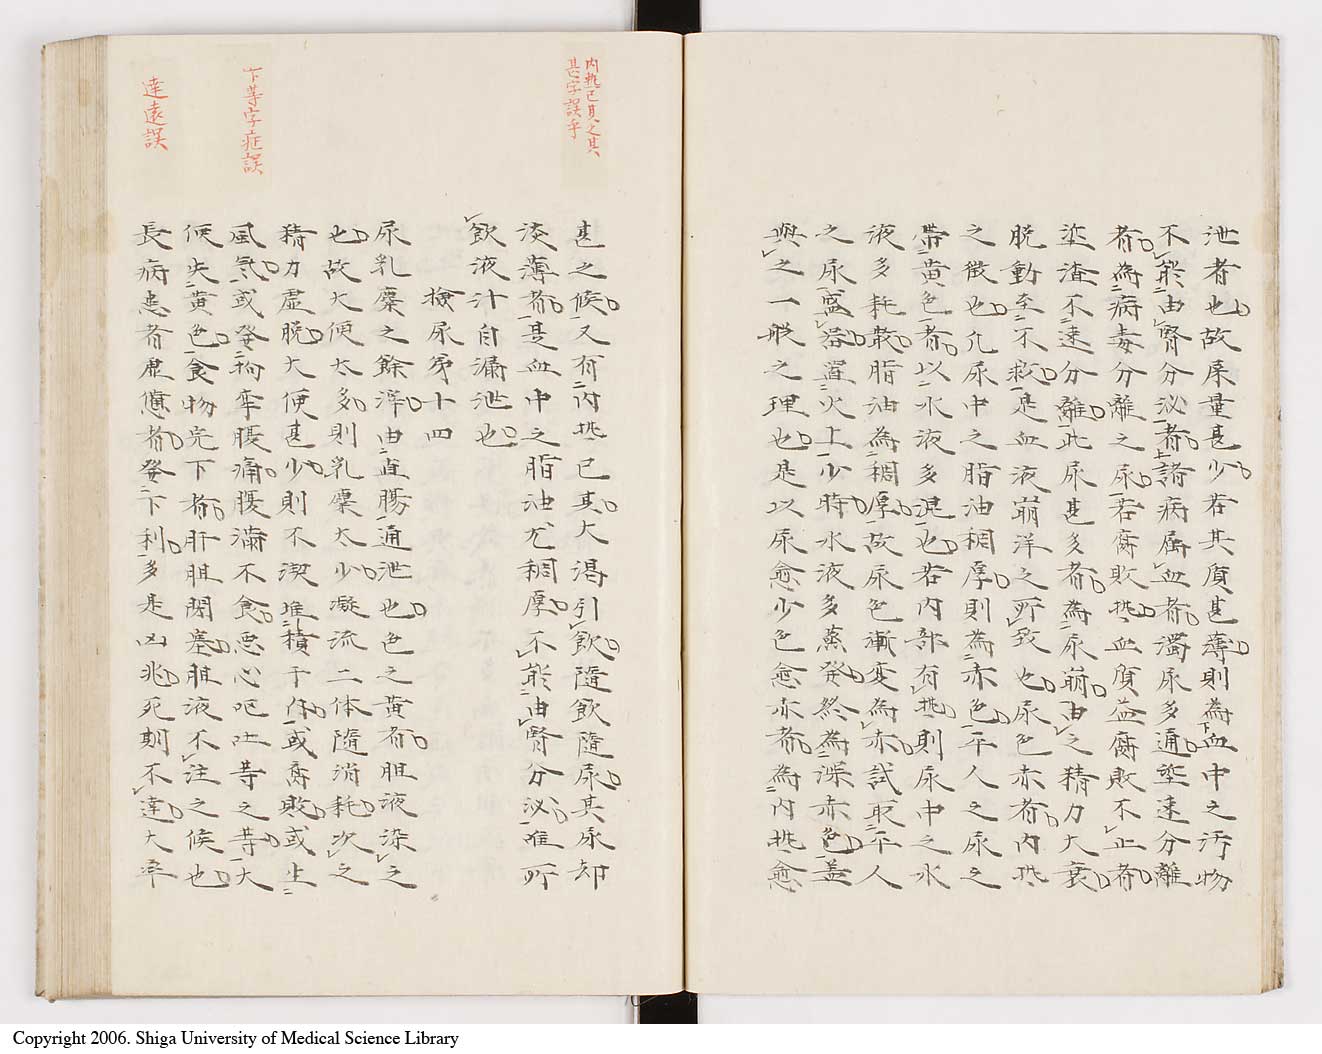 泄者也故屎量甚少若其質甚薄則為血中之汚物
不能由腎分泌者諸病属血者濁尿多通塗速分離
者為病毒分離之尿若腐敗熱血質益腐敗不止者
塗渣不速分離此尿甚多者為尿崩由之精力大衰
脱動至不救是血液崩洋之所致也尿色赤者内熱
之徴也凡尿中之脂油稠厚則為赤色平人之尿之
帯黄色者以水液多混也若内部有熱則尿中之水
液多耗散脂油為稠厚故尿色漸変為赤試取平人
之尿盛器置火上少時水液多蒸発終為深赤色蓋
與之一般之理也是以尿愈少色愈赤者為内熱愈
甚之候又有内熱已其大渇引飲隨飲隨尿其尿却
淡薄者是血中之脂油尤稠厚不能由腎分泌唯所
飲液汁自漏泄也
検尿第十四
尿乳糜之餘滓由直腸通泄也色之黄者胆液染之
也故大便太多則乳糜太少凝流二体隨消耗次之
精力虚脱大便甚少則不潔堆積于内或腐敗或生
風気或発拘牽腹痛腹満不食悪心吐等之等大
便失黄色食物完下者肝胆閉塞胆液不注之候也
長病患者虚憊者発下利多是凶兆死期不達大率
内熱已其之其
甚字誤乎
下等字症誤
達遠誤
Copyright 2006. Shiga University of Medical Science Library